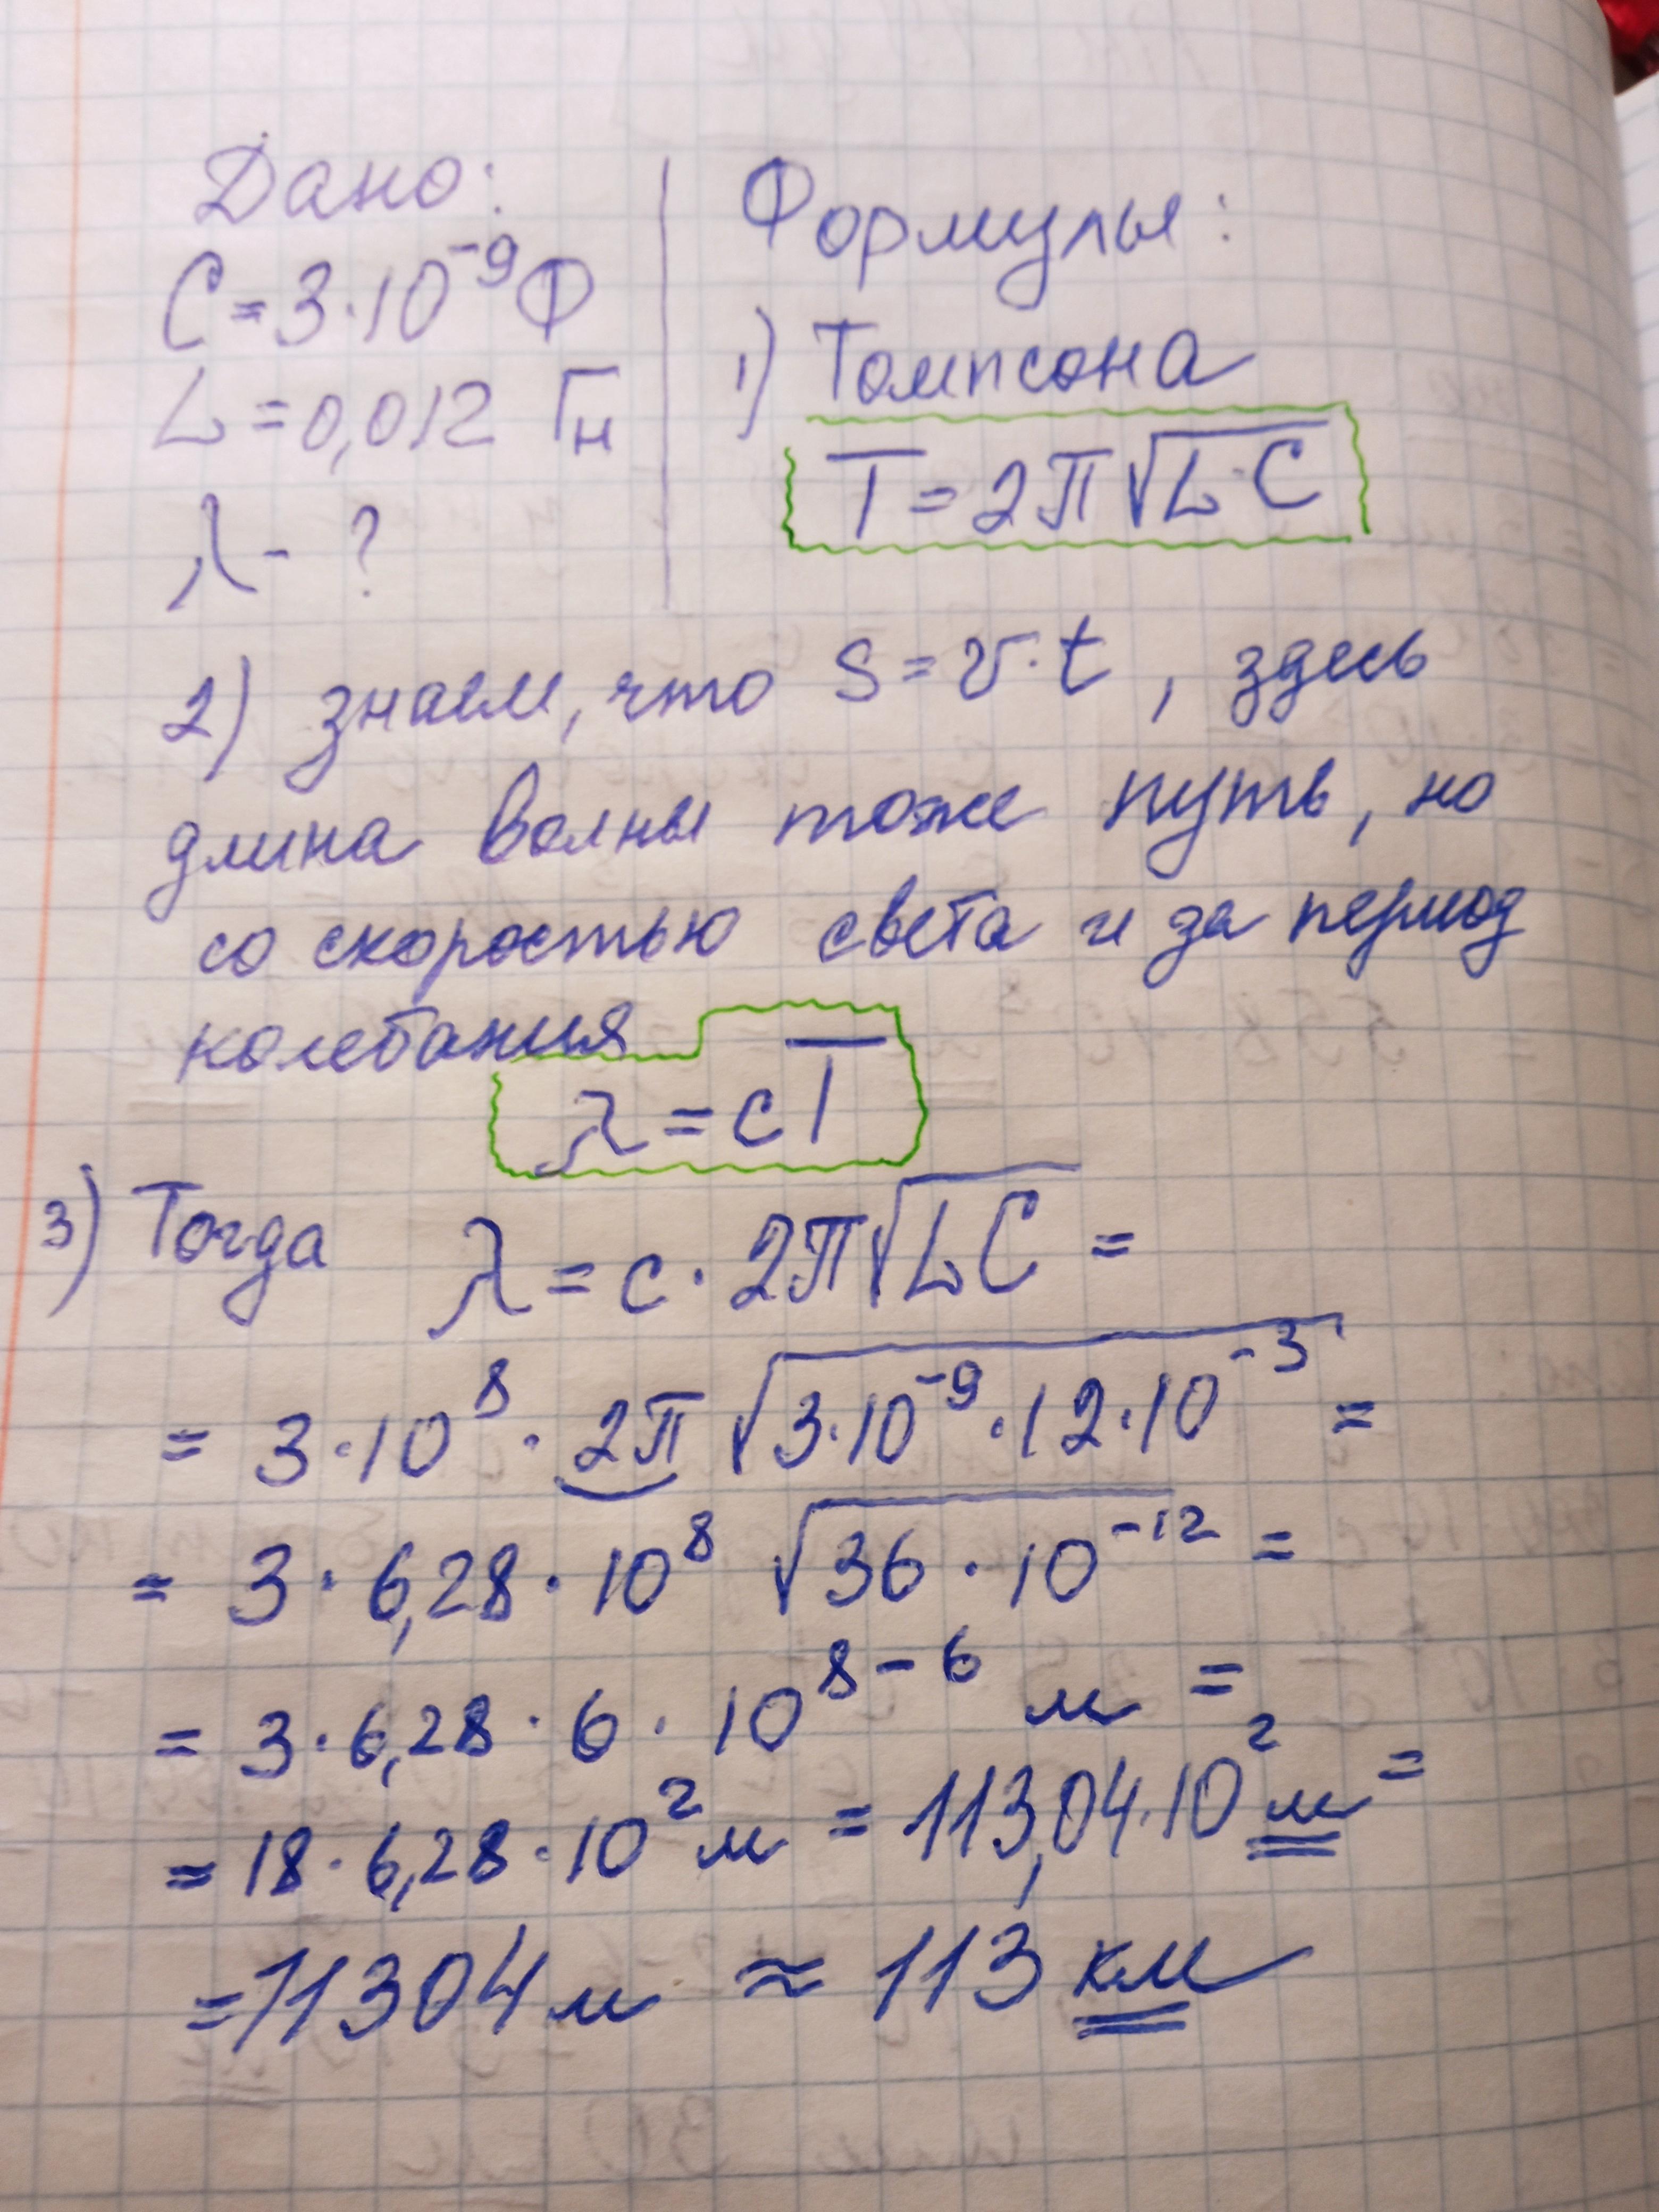 Дано:
C = 3·10⁻⁹ Ф
L = 0,012 Гн
λ - ?
Формулы:
1) Томпсона
T = 2π√L·C
2) знаем, что S = v·t, здесь
длина волны тоже путь, но
со скоростью света и за период
колебания
λ = cT
3) Тогда λ = c · 2π√LC =
= 3·10⁸ · 2π √3·10⁻⁹ · 12·10⁻³ =
= 3 · 6,28 · 10⁸ √36 · 10⁻¹² =
= 3 · 6,28 · 6 · 10⁸⁻⁶ м =
= 18 · 6,28 · 10² м = 113,04·10² м =
= 11304 м ≈ 113 км